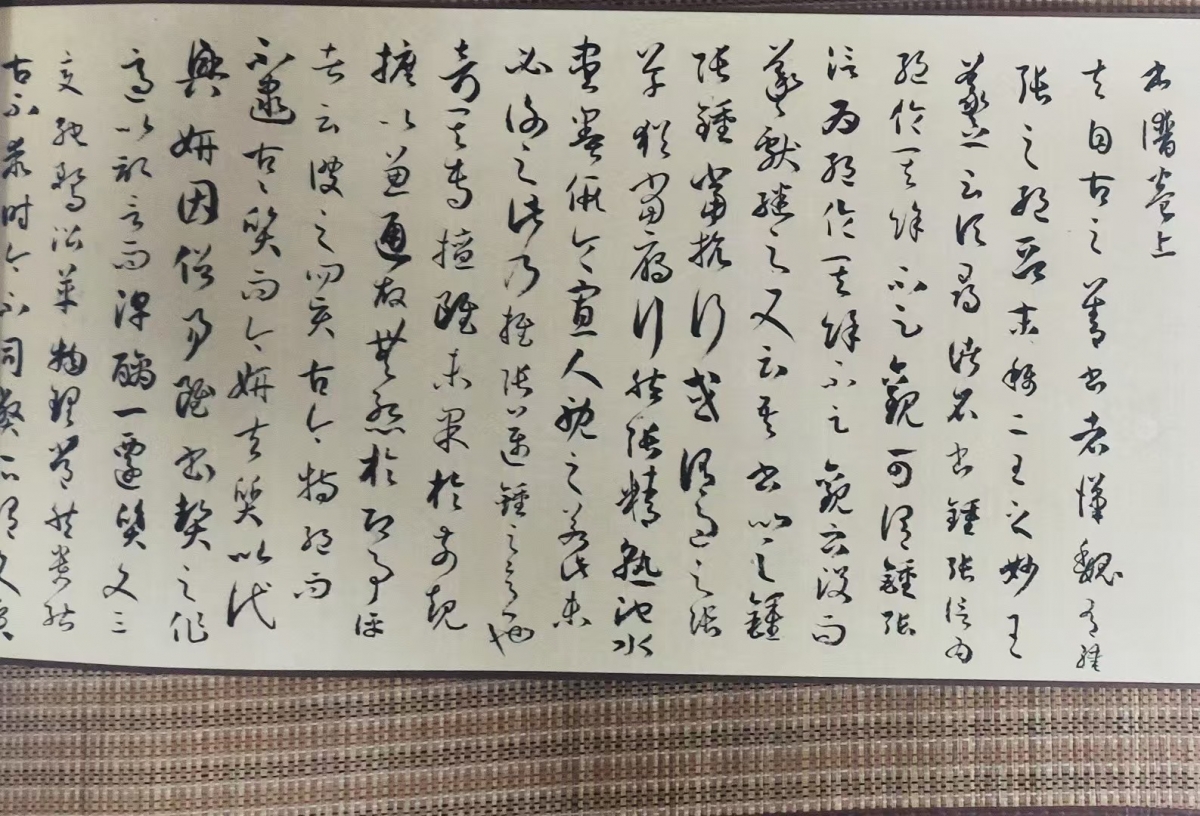 書譜卷上
夫自古之善書者漢魏有鍾
張之絕晉末稱二王之妙王
羲之云頃尋諸名書鍾張信為
絕倫其餘不足觀可謂鍾張
信為絕倫其餘不足觀云沒而
羲獻繼之又云吾書比之鍾
張鍾當抗行或謂過之張
草猶當雁行然張精熟池水
盡墨假令寡人耽之若此未
必謝之此乃推張邁鍾之意也
考其專擅雖未果於前規
摭以兼通故無慚於即事評
者云彼之四賢古今特絕而
不逮古々質而今妍夫質以代
興妍因俗易雖書契之作
適以記言而淳醨一遷質文三
變馳騖沿革物理常然貴能
古不乖時今不同弊所謂文質